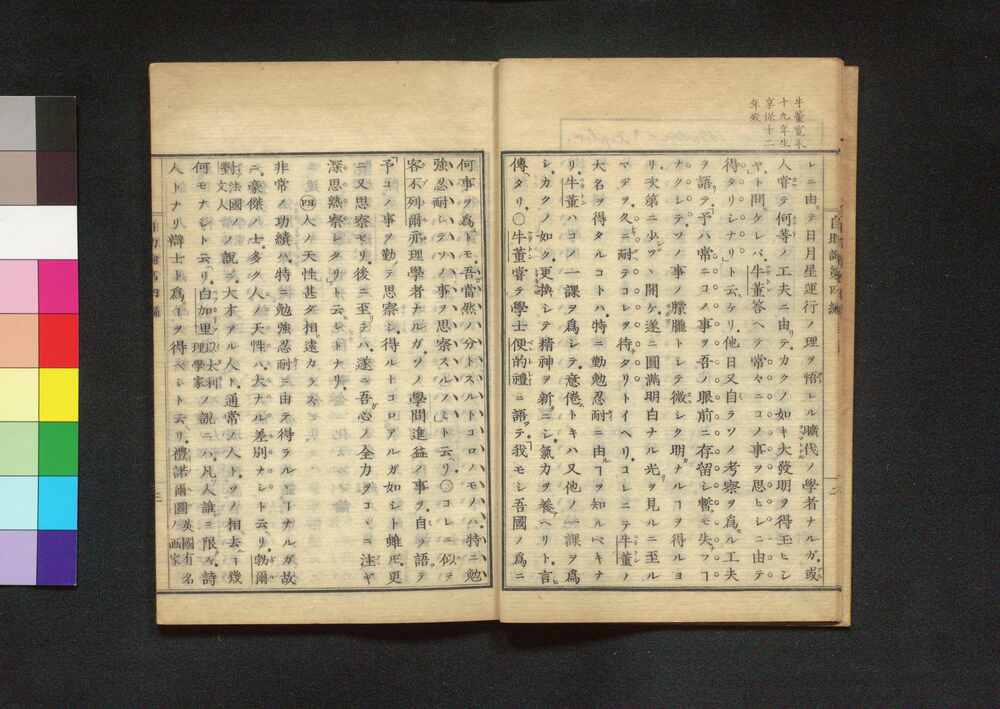 牛董寛永
十九年生
享保十二
年歿
レニ由テ日月星運行ノ理ヲ悟レル曠代ノ學者ナルガ或
人嘗テ何等ノ工夫ニ由テカクノ如キ大發明ヲ得玉ヒシ
ヤト問ケレバ牛董答ヘテ常々ニコノ事ヲ思ヒシニ由テ
得タリシナリト云ケリ他日又自ラソノ考察ヲ為ル工夫
ヲ語テ予ハ常ニコノ事ヲ吾ノ眼前ニ存留シ暫モ失フヿ
ナクシテソノ事ノ朦朧トシテ微シク明ナルヿヲ得ルヨ
リ次第ニ少ヅヽ開ケ遂ニ圓滿明白ナル光ヲ見ルニ至ル
マデヲ久ニ耐テコレヲ待タリトイヘリコレニテ牛董ノ
大名ヲ得タルコトハ特ニ勤勉忍耐ニ由ヿヲ知ルベキナ
リ牛董ハコノ一課ヲ爲シテ意倦トキハ又他ノ一課ヲ爲
シカクノ如ク更換シテ精神ヲ新ニシ氣力ヲ養ヘリト言
傳タリ○牛董嘗テ學士便的禮ニ語テ我モシ吾國ノ爲ニ
自助論第四編
二
何事ヲ爲トモ吾當然ノ分トスルトコロノモノハ特ニ勉
強忍耐シテソノ事ヲ思察スルノミト云リ○コレニ似テ
客不列爾亦理學者ナルガソノ學問進益ノ事ヲ自ラ語テ
予コノ事ヲ勤テ思察シ得ルトコロアルガ如シト雖𪜈更
ニ又思察セリ後ニ至テハ遂ニ吾心ノ全力ヲコヽニ注ギ
深思熟察シタリト云シトナリ
四人ノ天性甚ダ相遠カラズ
非常ノ功績ハ特ニ勉強忍耐ニ由テ得ラルヽヿナルガ故
ニ豪傑ノ士多ク人ノ天性ハ大ナル差別ナシト云リ勃爾
對法國ノ文人ノ說ニ大才アル人ト通常ノ人トソノ相去ヿ幾
何モナシト云リ白加里以太利理學家ノ說ニハ凡人誰ニ限ラズ詩
人トナリ辯士ト爲ヿヲ得ベシト云リ禮諾爾圖英國有名ノ画家
三